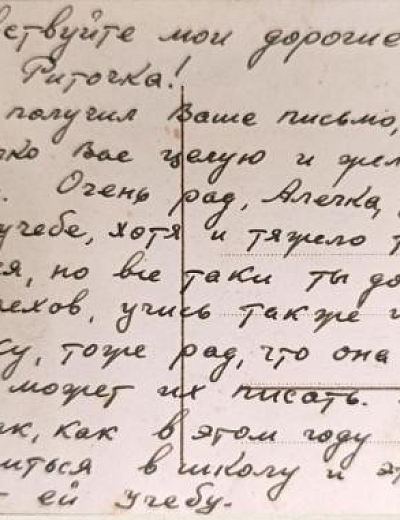 вствуйте мои дорогие
Риточка!
получил Ваше письмо,
чко Вас целую и жел
. Очень рад, Алечка,
учебе, хотя и тяжело т
ся, но все таки ты до
пехов, учись также и
су, тоже рад, что она
может их писать.
ак, как в этом году
иться в школу и эт
ей учебу.